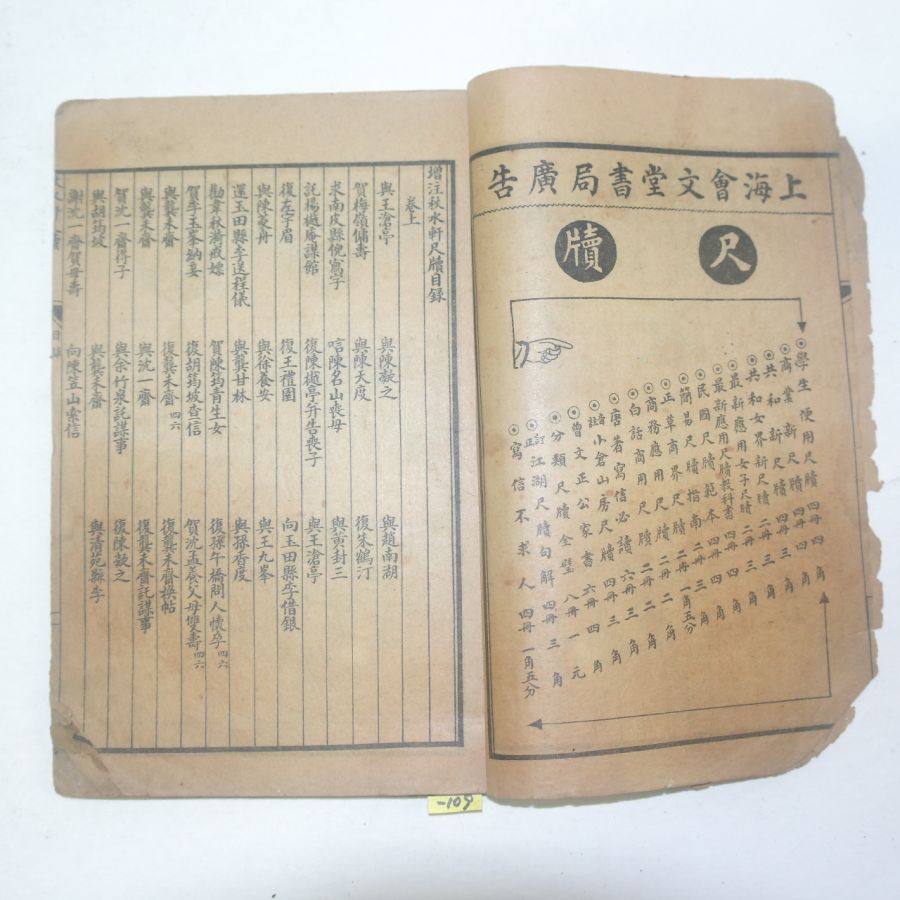 上海會文堂書局廣告
尺牘
學生便用尺牘 四冊 四角
商業新尺牘 四冊 三角
共和新尺牘 二冊 三角
共和女界新尺牘 二冊
最新應用女子尺牘 二冊
最新應用尺牘教科書 二冊
民國尺牘範本 四冊 四角
簡易尺牘指南 二冊 三角
正草商界尺牘 二冊 一角五分
商務應用尺牘 二冊 二角
白話商用尺牘 二冊 二角
唐著寫信必讀 六冊 三角
音註小倉山房尺牘 四冊 三角
曾文正公家書 六冊 四角
分類尺牘全璧 八冊 一元
訂正江湖尺牘句解 四冊 三角
寫信不求人 四冊 一角五分
增注秋水軒尺牘目錄
卷上
與王滄亭 與陳懿之 與趙南湖
賀梅嶺傭壽 與陳天度 復朱鶴汀
求南皮縣倪寫字 唁陳石山喪母 與黃封三
託楊樾庵謀館 復陳樾亭弁告喪子 與王滄亭
復左字眉 復王禮圃 向玉田縣李借銀
與陳菱舟 與徐養安 與王九峯
還玉田縣李送程儀 與龔甘林 與孫香度
勸韋秋漪戒嫖 賀陳筠青生女 復孫午橋問人懷孕四六
賀李玉峯納妾 復胡筠坡查信 賀沈孟養父母雙壽四六
與龔未齋 復龔未齋四六 復龔未齋換帖
與龔未齋 與沈一齋 復龔未齋託謀事
賀沈一齋得子 與余竹泉託謀事 復陳懿之
與胡筠坡 與龔未齋 與清苑縣李
謝沈一齋賀母壽 向陳笠山索信
-109